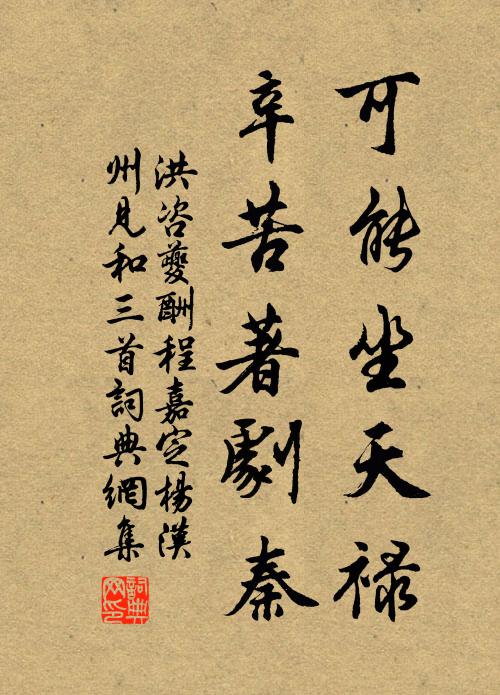 可能坐天禄
辛苦著劇秦
洪咨夔酬程嘉定楊漢
州見和三首詞典網集
詞典网印